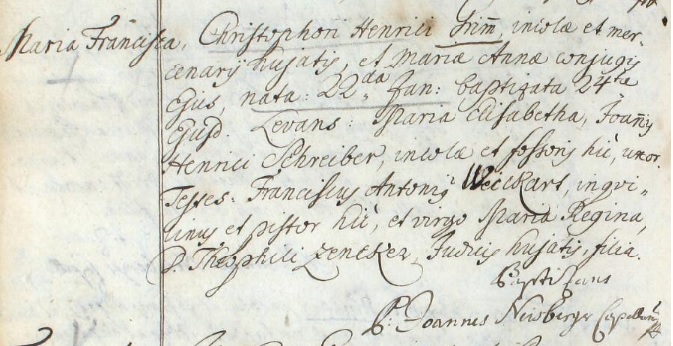 Maria Francisca, Christophori Henrici Grim̄, incolæ et mer-
cenarij hujatis, et Mariæ Annæ conjugis
Ejus, nata: 22da Jan: baptizata 24tæ
Ejusd. Levans: Maria Elisabetha, Joan̄is
Henrici Schreiber, incolæ et fossoris hic, uxor.
Testes: Franciscus Antonius Weickart, inqvi-
linus et pistor hic, et virgo Maria Regina,
D. Theophili Zencker, Judicis hujatis, filia.
Baptizans
P: Joannes Neisberger Capellan9